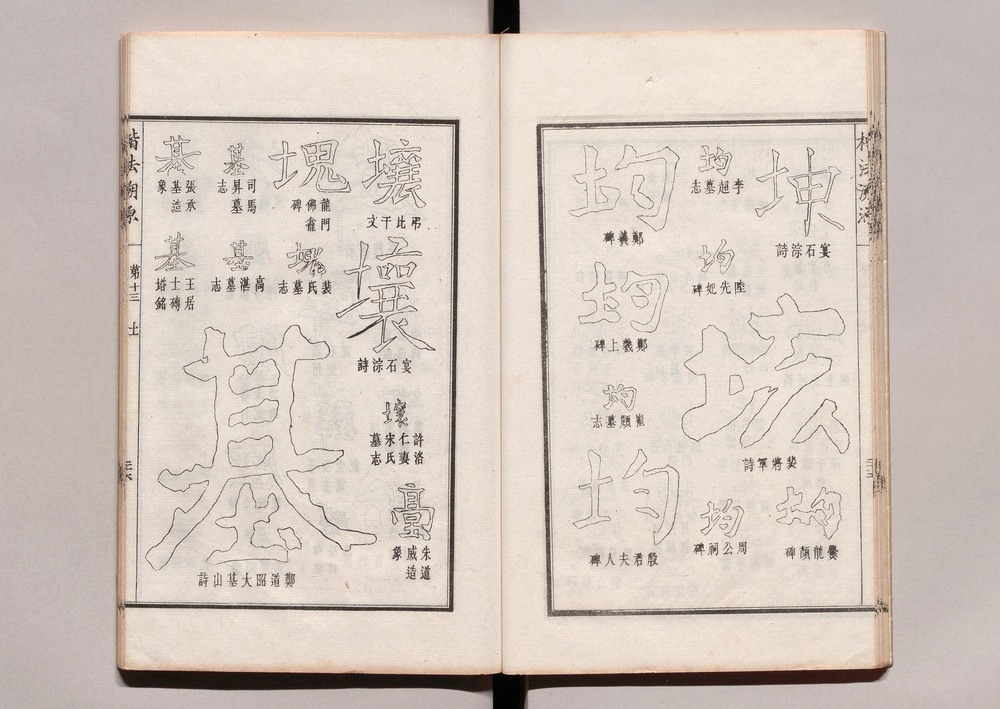 坤
宴石淙詩
垓
裴將軍詩
均
爨龍顏碑
均
李超墓志
均
陸先妃碑
均
周公祠碑
均
鄭羲碑
均
鄭羲上碑
均
崔頠墓志
均
殷君夫人碑
壤
弔比干文
壤
宴石淙詩
壤
許洛
仁妻
宋氏
墓志
朱道
威造
象
塊
龍門
佛龕
碑
裴氏墓志
基
司馬
昇墓
志
基
高湛墓志
基
鄭道昭大基山詩
基
張承
基造
象
基
王居
士磚
塔銘
楷法溯原
第十三
土